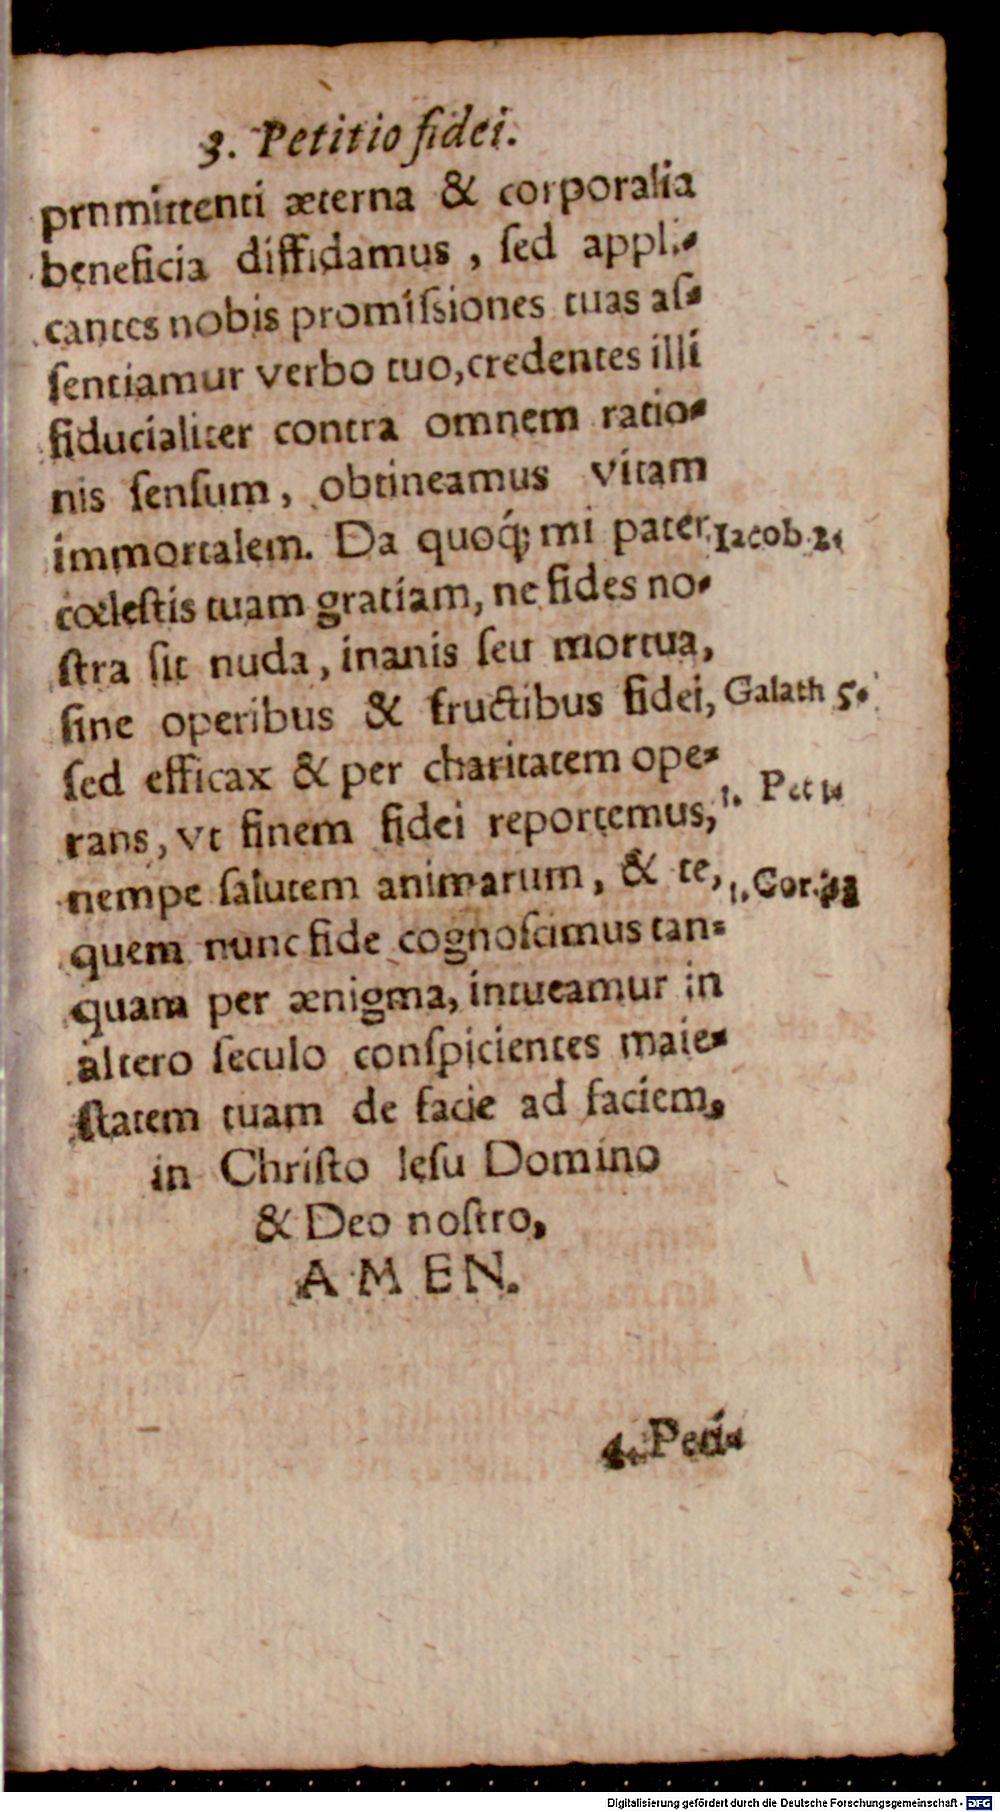 3. Petitio fidei.
prnmittenti æterna & corporalia
beneficia diffidamus, ſed appli-
cantes nobis promiſsiones tuas aſ-
ſentiamur verbo tuo, credentes illi
fiducialiter contra omnem ratio-
nis ſenſum, obtineamus vitam
immortalem. Da quoq́; mi pater
Iacob. 2.
cœleſtis tuam gratiam, ne fides no-
ſtra ſit nuda, inanis ſeu mortua,
ſine operibus & fructibus fidei,
Galath 5.
ſed efficax & per charitatem ope-
rans, vt finem fidei reportemus,
1. Pet 1.
nempe ſalutem animarum, & te,
1. Cor. 13
quem nunc fide cognoſcimus tan-
quam per ænigma, intueamur in
altero ſeculo conſpicientes maie-
ſtatem tuam de facie ad faciem,
in Chriſto Ieſu Domino
& Deo noſtro,
AMEN.
4. Peti-
Digitalisierung gefördert durch die Deutsche Forschungsgemeinschaft - DFG